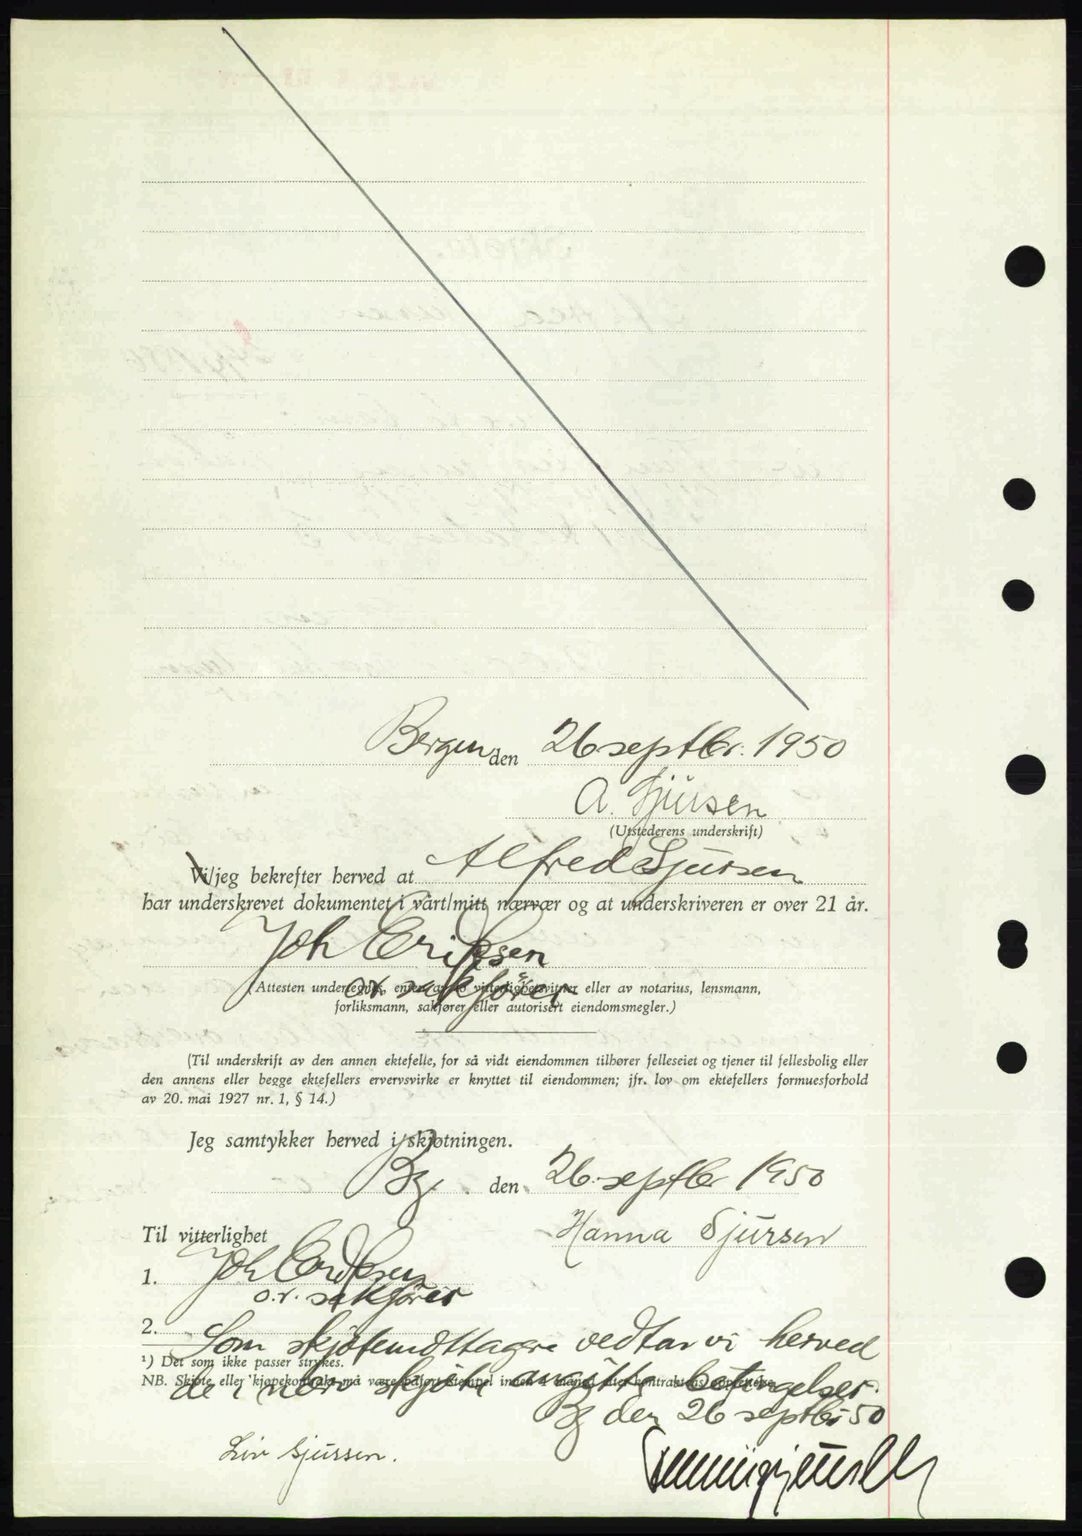 Bergen den 26 septbr. 1950
A. Sjursen
(Utstederens underskrift)
Vi/jeg bekrefter herved at Alfred Sjursen
har underskrevet dokumentet i vårt/mitt nærvær og at underskriveren er over 21 år.
Joh Eriksen
o.r. sakfører
(Attesten undertegnes enten av to vitterlighetsvitner eller av notarius, lensmann,
forliksmann, sakfører eller autorisert eiendomsmegler.)
(Til underskrift av den annen ektefelle, for så vidt eiendommen tilhører felleseiet og tjener til fellesbolig eller
den annens eller begge ektefellers ervervsvirke er knyttet til eiendommen; jfr. lov om ektefellers formuesforhold
av 20. mai 1927 nr. 1, § 14.)
Jeg samtykker herved i skjøtningen.
Bg. den 26. septbr 1950
Til vitterlighet Hanna Sjursen
1. Joh Eriksen
o.r. sakfører
2.
Som skjøtemottagere vedtar vi herved
¹) Det som ikke passer strykes.
de i nærv skjøte angitte betingelser.
NB. Skjøte eller kjøpekontrakt må være påført stempel innen
Bg den 26 septbr 50
Liv Sjurssen.